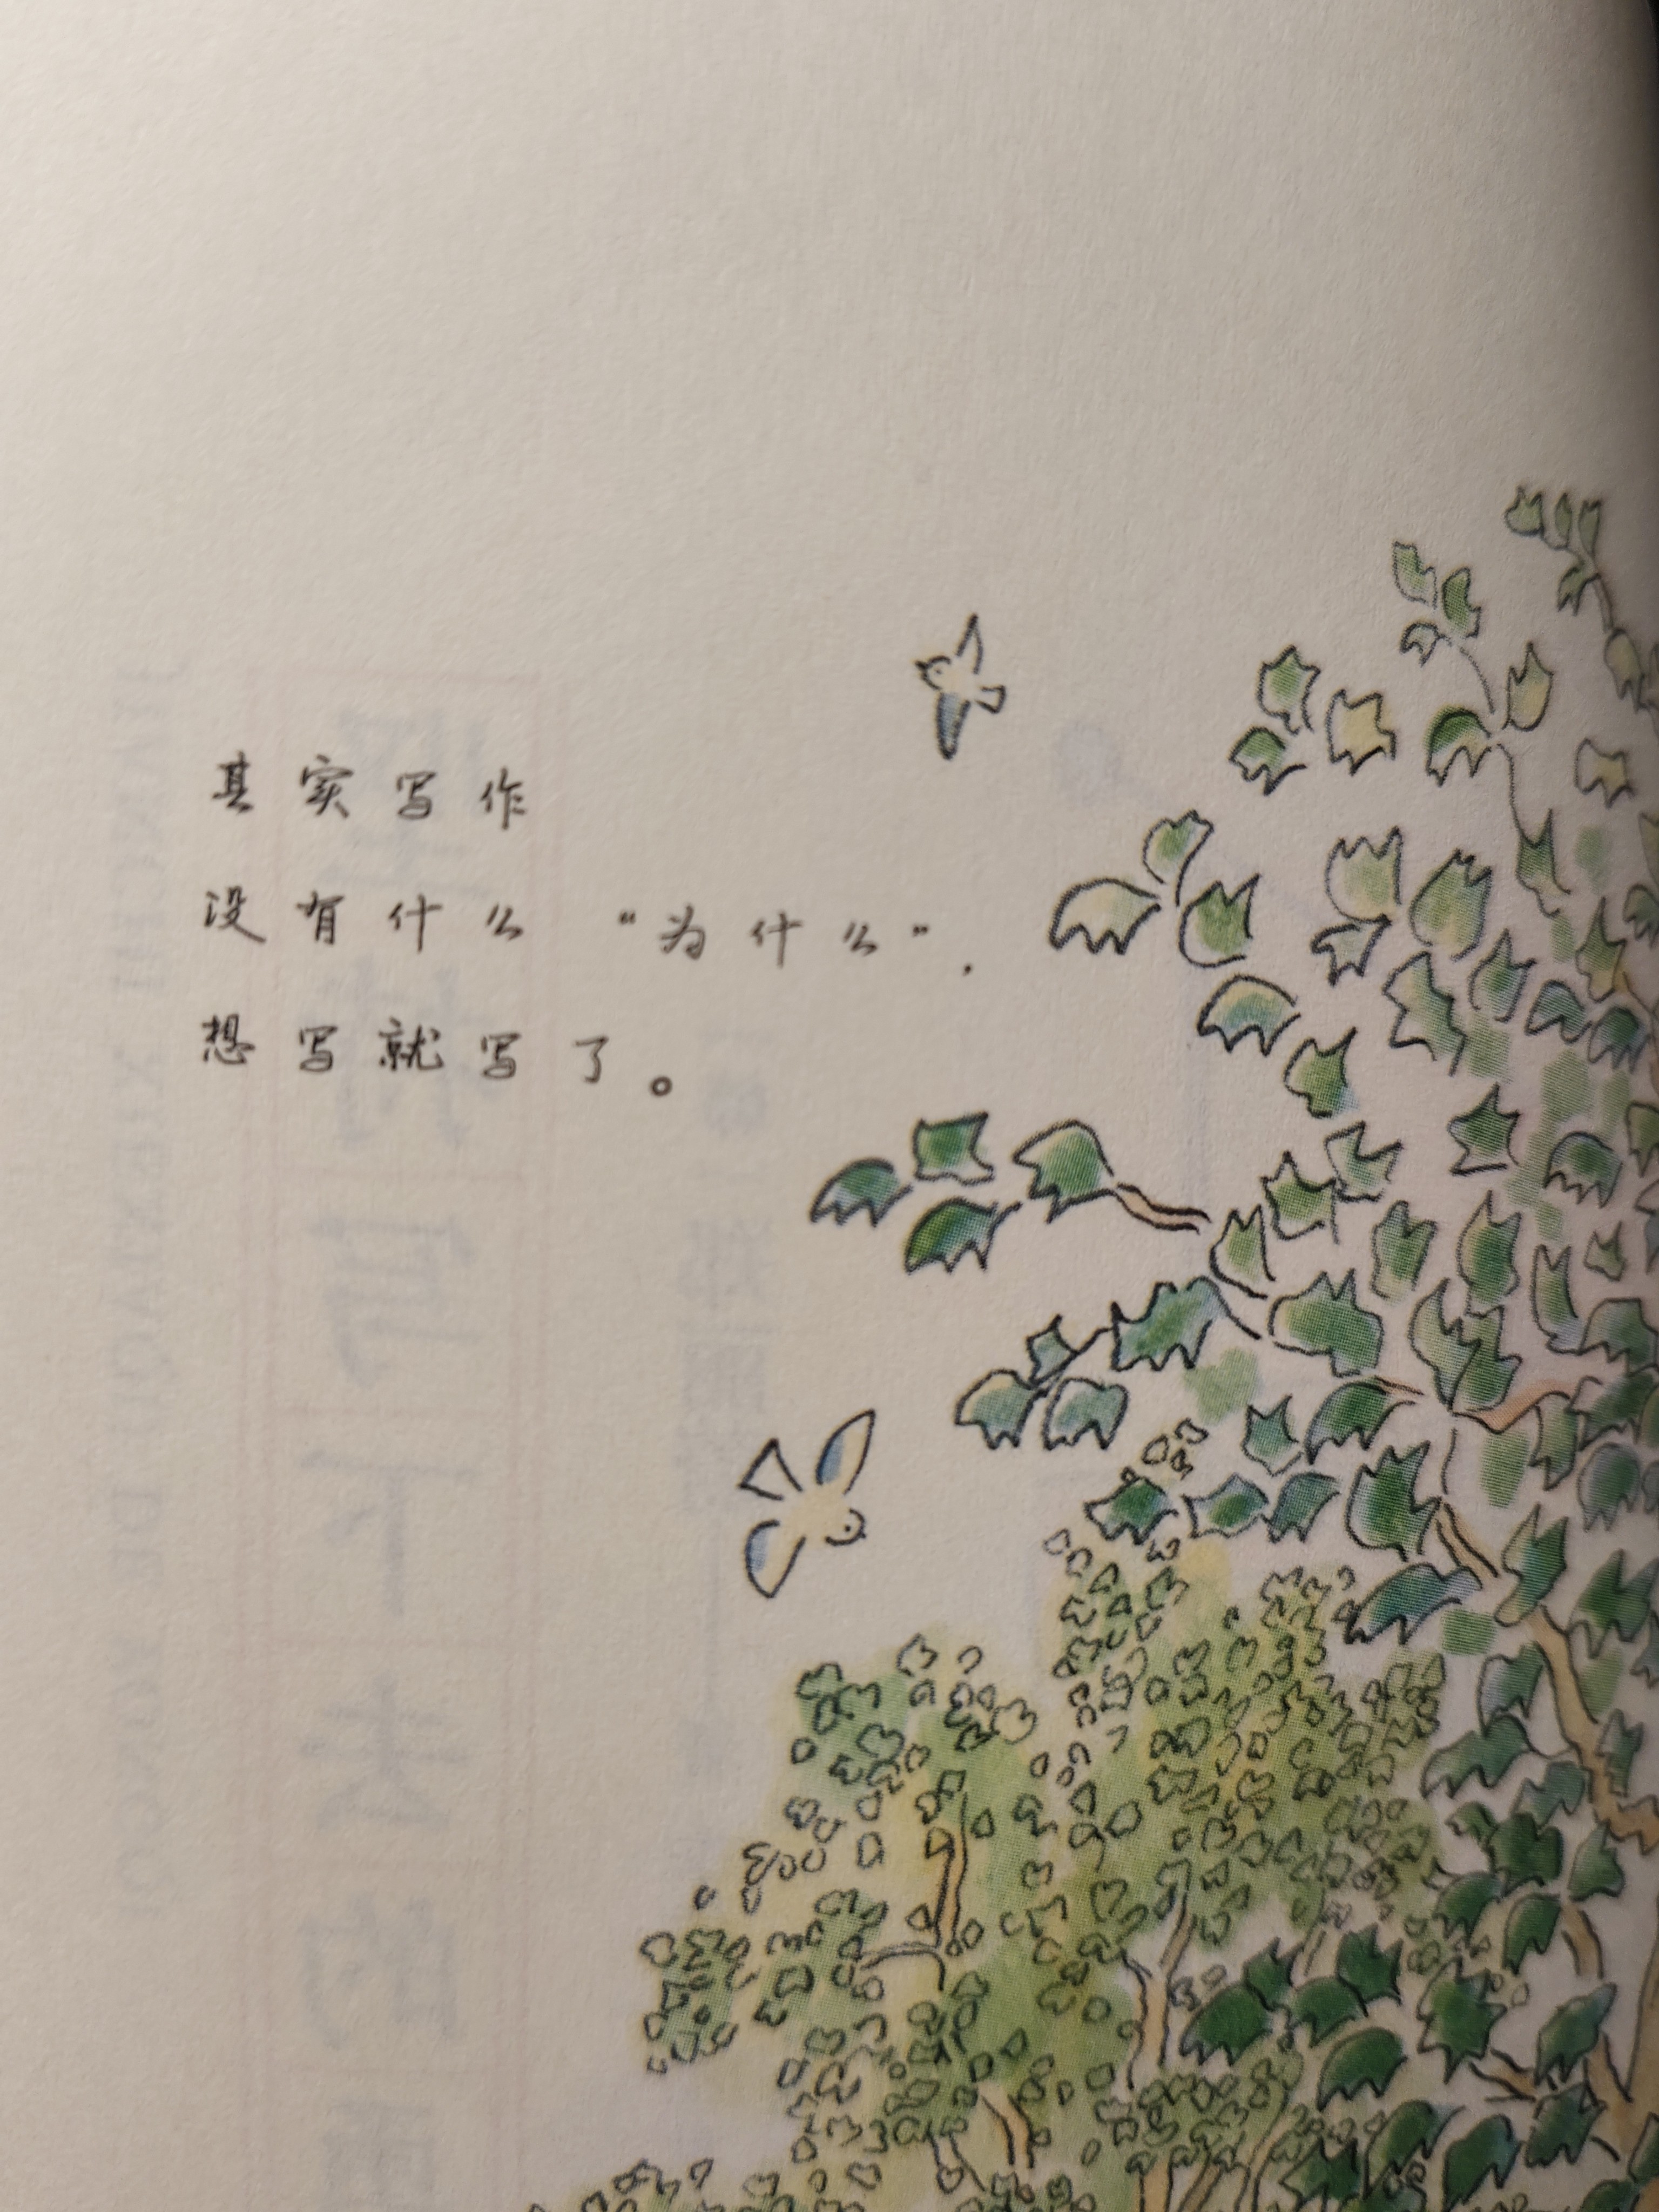 其实写作
没有什么“为什么”，
想写就写了。